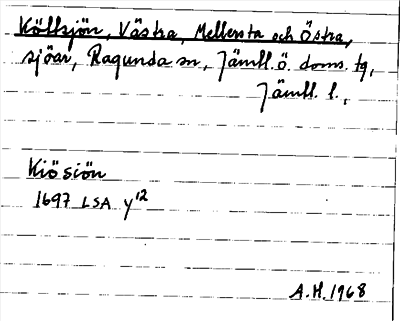 Költsjön, Västra, Mellersta och Östra,
sjöar, Ragunda sn, Jämtl. ö. doms. tg,
Jämtl. l.,
Kiösiön
1697 LSA y12
A.H. 1968